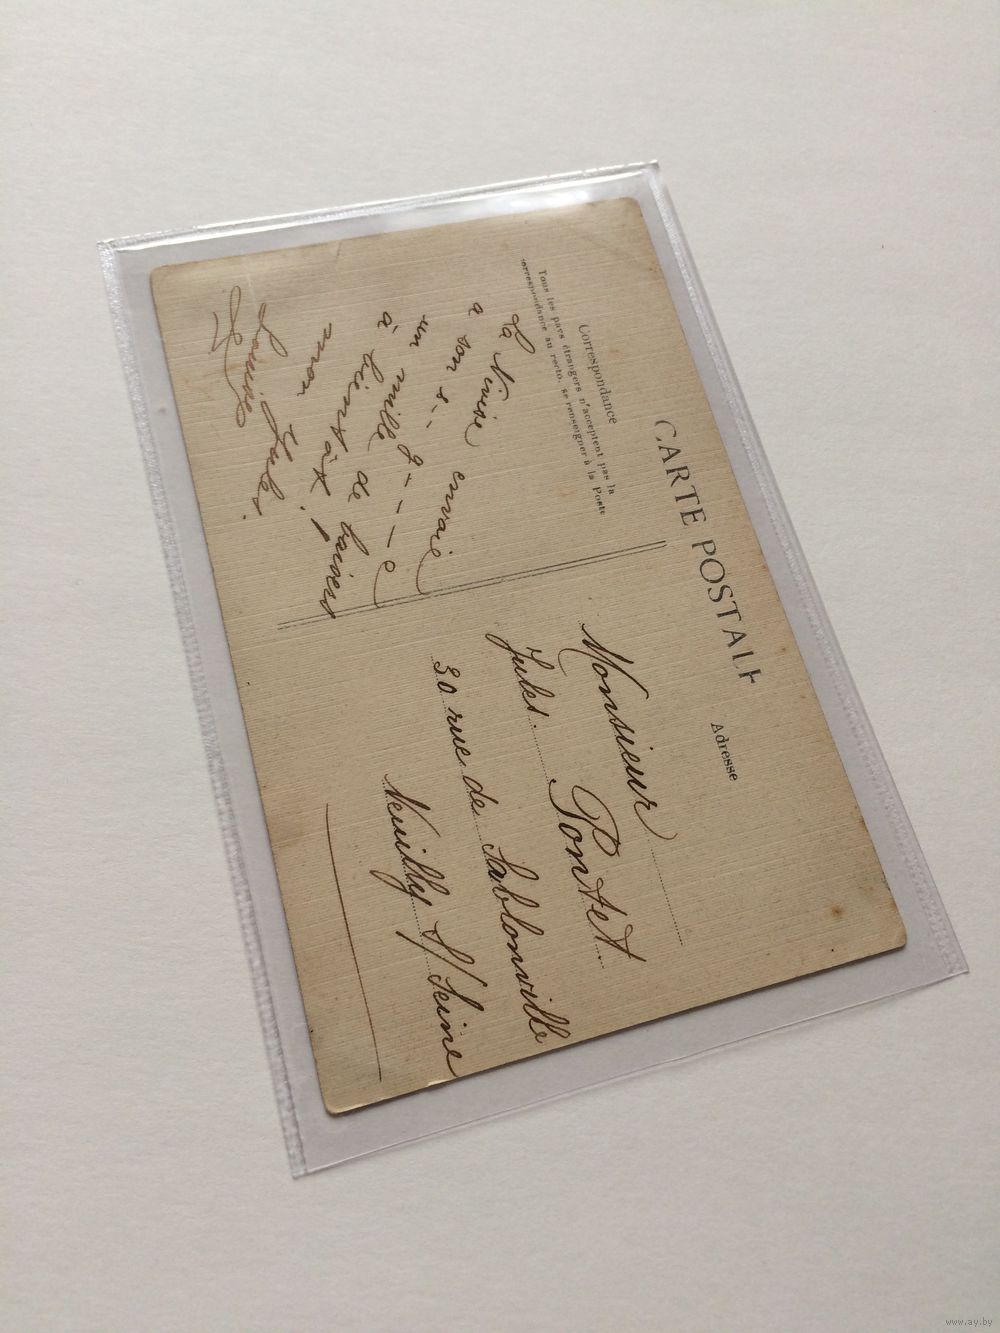 CARTE POSTALE
Correspondance
Tous les pays étrangers n'acceptent pas la
correspondance au recto, se renseigner à la Poste
Adresse
La Ninise envoie
a son s--
un mille g----e
à de baisers
bientôt
mon Jules.
Louise
Monsieur
Jules. Pontet
30 rue de Sablonville
Neuilly S/Seine
www.ay.by